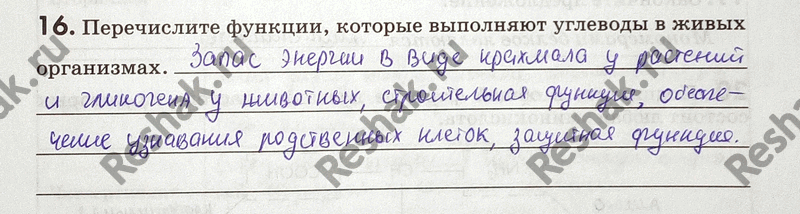 16. Перечислите функции, которые выполняют углеводы в живых
организмах. Запас энергии в виде крахмала у растений
и гликогена у животных, строительная функция, обеспе-
чение узнавания родственных клеток, защитная функция.
Reshak.ru
Reshak.ru
Reshak.ru
Reshak.ru
Reshak.ru